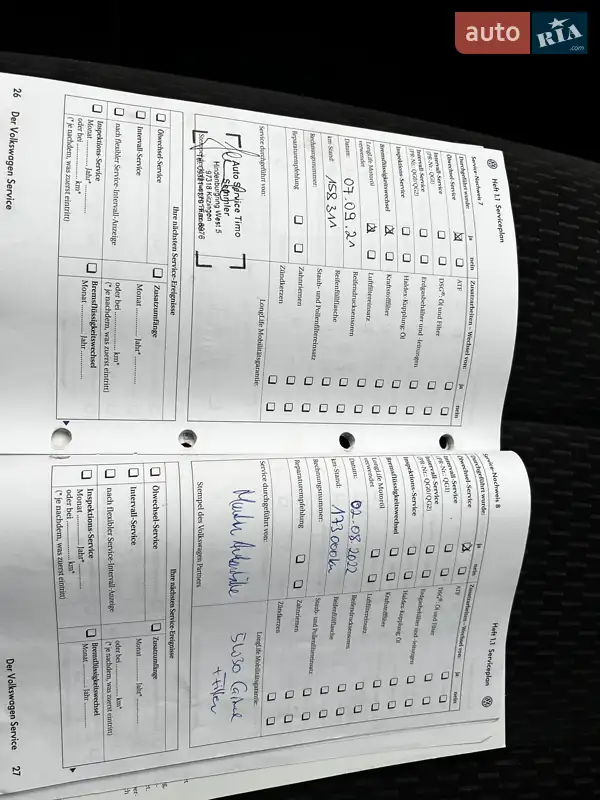 auto RIA .com
Heft 1.1 Serviceplan
Service-Nachweis 7
Durchgeführt wurde:
ja
nein
Zusatzarbeiten – Wechsel von:
ja
nein
Ölwechsel-Service
ATF
Intervall-Service
(PR-Nr.: QG1)
DSG®: Öl und Filter
Intervall-Service
(PR-Nr.: QG0/QG2)
Erdgasbehälter und -leitungen
Inspektions-Service
Haldex Kupplung: Öl
Bremsflüssigkeitswechsel
Kraftstofffilter
LongLife Motoröl
verwendet
Luftfiltereinsatz
Datum: 07.09.21
Reifendrucksensoren
km-Stand: 158311
Reifenfüllflasche
Rechnungsnummer:
Staub- und Pollenfiltereinsatz
Reparaturempfehlung
Zahnriemen
Zündkerzen
Service durchgeführt von:
LongLife Mobilitätsgarantie:
Auto Service Timo
Hindenburgring West 5
97318 Kitzingen
Ihre nächsten Service-Ereignisse
Ölwechsel-Service
Zusatzumfänge
Intervall-Service
Monat Jahr*
oder bei km*
nach flexibler Service-Intervall-Anzeige
(* je nachdem, was zuerst eintritt)
Inspektions-Service
Monat Jahr*
oder bei km*
(* je nachdem, was zuerst eintritt)
Bremsflüssigkeitswechsel
Monat Jahr
26 Der Volkswagen Service
Heft 1.1 Serviceplan
Service-Nachweis 8
Durchgeführt wurde:
ja
nein
Zusatzarbeiten – Wechsel von:
ja
nein
Ölwechsel-Service
ATF
Intervall-Service
(PR-Nr.: QG1)
DSG®: Öl und Filter
Intervall-Service
(PR-Nr.: QG0/QG2)
Erdgasbehälter und -leitungen
Inspektions-Service
Haldex Kupplung: Öl
Bremsflüssigkeitswechsel
Kraftstofffilter
LongLife Motoröl
verwendet
Luftfiltereinsatz
Datum: 02.08.2022
Reifendrucksensoren
km-Stand: 173000km
Reifenfüllflasche
Rechnungsnummer:
Staub- und Pollenfiltereinsatz
Reparaturempfehlung
Zahnriemen
Zündkerzen
Service durchgeführt von:
LongLife Mobilitätsgarantie:
5W30
+ Filter
Stempel des Volkswagen Partners
Ihre nächsten Service-Ereignisse
Ölwechsel-Service
Zusatzumfänge
Intervall-Service
Monat Jahr*
oder bei km*
nach flexibler Service-Intervall-Anzeige
(* je nachdem, was zuerst eintritt)
Inspektions-Service
Monat Jahr*
oder bei km*
(* je nachdem, was zuerst eintritt)
Bremsflüssigkeitswechsel
Monat Jahr
Der Volkswagen Service 27